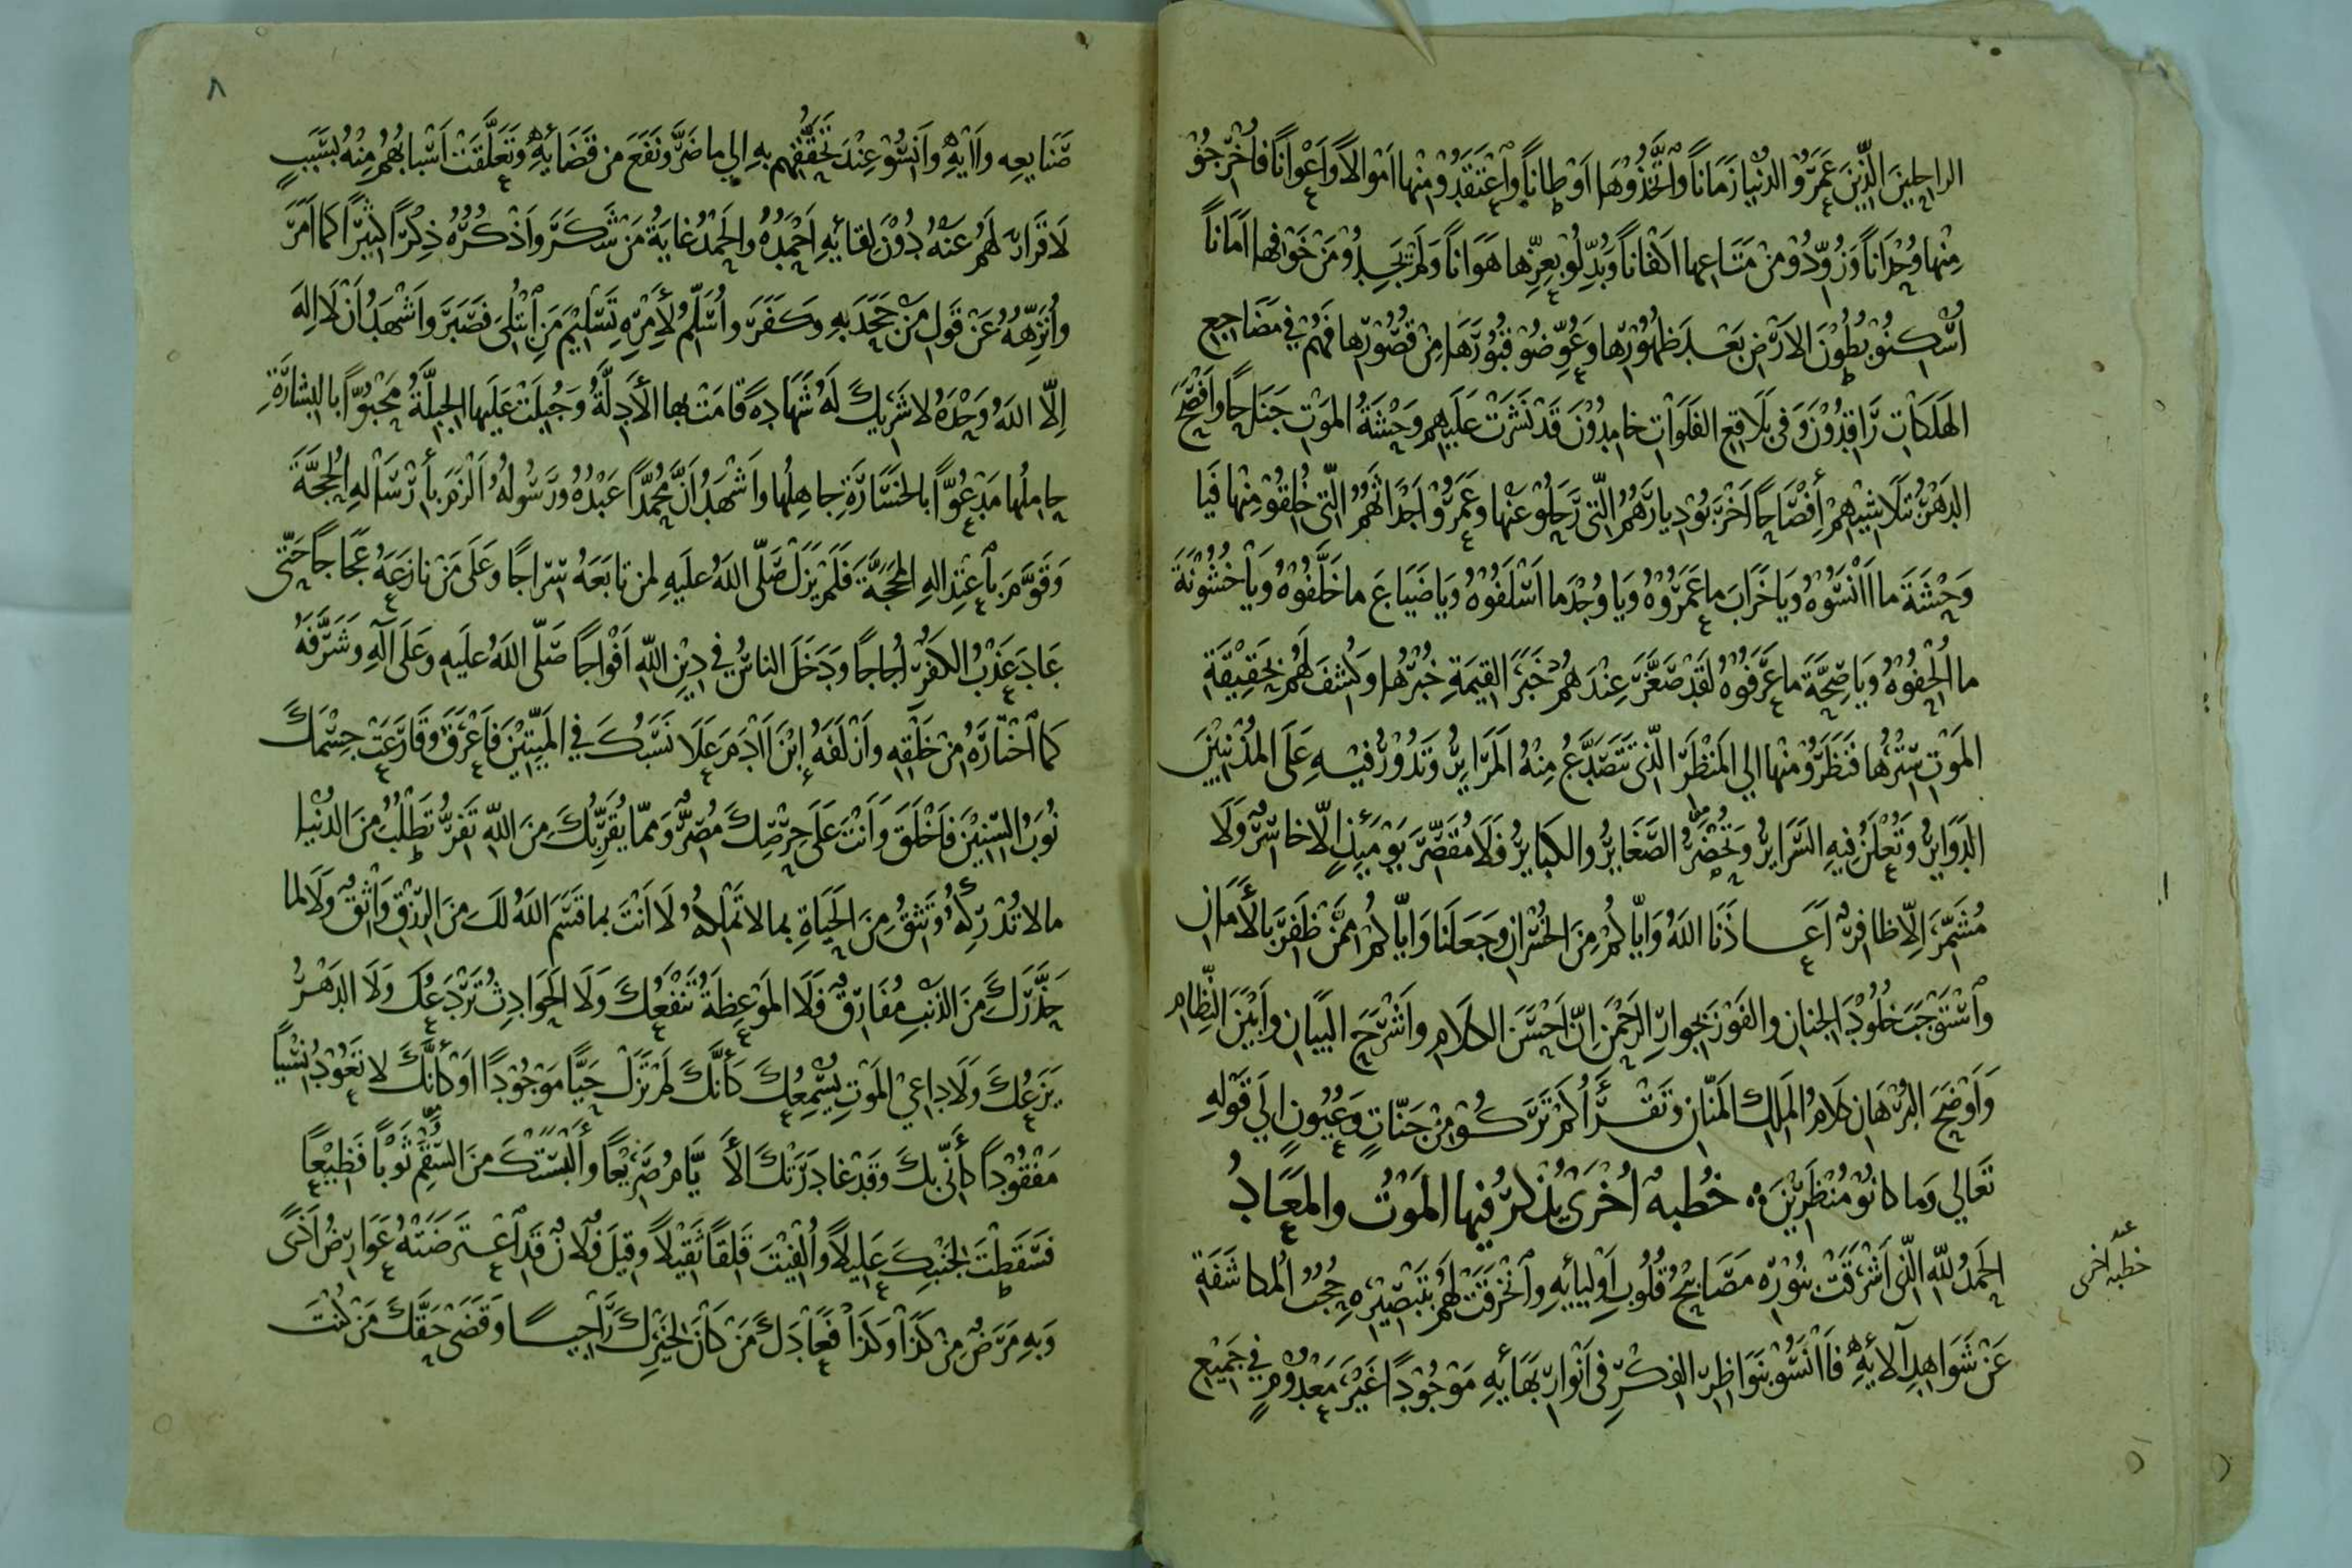 الراحِلِينَ الَّذِينَ عَمَرُوْ الدُّنْيا زَمَاناً وَاتَّخَذُوْهَا اَوْطاناً وَاعْتَقَدُوْ مِنْها اَمْوالاً وَاَعْوَاناً فَاُخْرِجُوْ
مِنْها وُحْدَاناً وَزُوِّدُوْ مِنْ مَتَاعِها اَكْفاناً وَبُدِّلُوْ بِعِزِّها هَوَاناً وَلَمْ يَجِدُوْ مَنْ خَوْفِها اَمَاناً
اُسْكِنُوْ بُطُوْنَ الاَرْضِ بَعْدَ ظُهُوْرِها وَعُوِّضُوْ قُبُوْرَهَا مِنْ قُصُوْرِها فَهُمْ فِي مَضَاجِعِ
الهَلَكَاتِ رَاقِدُوْنَ وَفِي بَلَاقِعِ الفَلَوَاتِ خامِدُوْنَ قَدْ نَشَرَتْ عَلَيهِم وَحْشَةُ المَوْتِ جَنَاحًا وَاَفْصَحَ
الدَهْرُ بِتَلَاشِيْهِمْ اِفْصَاحًا اَخْرَبُوْ دِيارَهُمُ الَّتِي رَحَلُوْ عَنْها وَعَمَرُوْ اَجْدَاثَهُمُ الَّتِي خُلِقُوْ مِنْها فَيَا
وَحْشَةَ ما اَنْسُوْهُ وَيَا خَرَابَ ما عَمَرُوْهُ وَيَا وُجْدَ ما اَسْلَفُوْهُ وَيَا ضَيَاعَ ما خَلَّفُوْهُ وَيَا خُشُوْنَةَ
ما اُلْحِفُوْهُ وَيَا صِحَّةَ ما عَرَفُوْهُ لَقَدْ صَغَّرَ عِنْدَهُمْ خَبَرَ القِيمَةِ خُبْرُها وَكُشِفَ لَهُمْ بِحَقِيْقَةِ
المَوْتِ سِتْرُها فَنَظَرُوْ مِنْها الي المَنْظَرِ الَّذِي تَتَصَدَّعُ مِنْهُ المَرَايِرُ وَتَدُوْرُ فِيْهِ عَلَى المُذْنِبِيْنَ
الدَوَايِرُ وَتُعْلَنُ فِيهِ السَرَايِرُ وَتُحْضَرُ الصَّغَايِرُ والكَبايِرُ فَلَا مُقَصِّرَ يَوْمَئِذٍ اِلَّا خاسِرٌ وَلَا
مُشَمِّرَ اِلّا ظافِرٌ اَعَاذَنَا اللهُ وَاِيَّاكُمْ مِنَ الخُسْرَانِ وَجَعَلَنا وَاِيَّاكُمْ مِمَّنْ ظَفِرَ بِالأَمَانِ
وَاسْتَوْجَبَ خُلُوْدَ الجِنَانِ والفَوْزَ بِجِوارِ الرَحْمٰنِ اِنَّ اَحْسَنَ الكَلَامِ وَاَشْرَحَ البَيَانِ وَاَبْيَنَ النِّظَامِ
وَاَوْضَحَ البُرْهَانِ كَلَامُ المَلِكِ المَنَّانِ وَتَقْرَأُ كَمْ تَرَكُوْ مِنْ جَنَّاتٍ وَعُيُوْنٍ الي قَوْلِهِ
تَعَالي وَما كانُوْ مُنْظَرِيْنَ ه خُطبةٌ اُخْرَى يُذْكَرُ فِيها المَوْتُ والمَعَادُ
الحَمْدُ لِلّٰهِ الَّذِي اَشْرَقَتْ بِنُوْرِه مَصَابِيْحُ قُلُوْبِ اَوْلِيائِهِ وَانْخَرَقَتْ لَهُمْ بِتَبْصِيْرِهِ حُجُبُ المُكاشَفَةِ
عَنْ شَوَاهِدِ آلائِهِ فَاَنْسُوْ بِنَوَاظِرِ الفِكْرِ فِي اَنْوَارِ بَهَائِهِ مَوْجُوْدًا غَيْرَ مَعْدُوْمٍ فِي جَمِيْعِ
خطبه اخرى
٨
صَنايِعِه وَاٰيَاتِهِ وَاَنِسُوْ عِنْدَ تَحَقُّقِهِم بِهِ الي ما ضَرَّ وَنَفَعَ مِن قَضَائِهِ وَتَعَلَّقَتْ اَسْبابُهُمْ مِنْهُ بِسَبَبٍ
لَا قَرَارَ لَهُمْ عَنْهُ دُوْنَ لِقائِهِ اَحْمَدُهُ والحَمْدُ غايَةُ مَنْ شَكَرَ وَاَذْكُرُهُ ذِكْرًا كَثِيْرًا كَما اَمَرَ
وَاُنَزِّهُهُ عَنْ قَوْلِ مَنْ جَحَدَ بِهِ وَكَفَرَ وَاُسَلِّمُ لِأَمْرِهِ تَسْلِيْمَ مَنِ ابْتُلِيَ فَصَبَرَ وَاَشْهَدُ اَنْ لَا اِلٰهَ
اِلَّا اللهُ وَحْدَهُ لا شَرِيْكَ لَهُ شَهَادةً قامَتْ بها الأَدِلَّةُ وَجُبِلَتْ عَلَيها الجِبِلَّةُ مَحْبُوًّا بالبِشَارَةِ
حامِلُها مَدْعُوًّا بالخَسَارَةِ جاهِلُها وَاَشْهَدُ اَنَّ مُحَمَّدًا عَبْدُهُ وَرَسُولُهُ اَلْزَمَ بِأِرْسَالِهِ الحُجَّةَ
وَقَوَّمَ بِأِعْتِدَالِهِ المَحَجَّةَ فَلَمْ يَزَلْ صَلَّى اللهُ عَلَيهِ لِمَن تابَعَهُ سِرَاجًا وَعَلَى مَنْ نازَعَهُ عَجَاجًا حَتَّى
عَادَ عَذْبُ الكُفْرِ اُجَاجًا وَدَخَلَ الناسُ فِي دِيْنِ اللهِ اَفْوَاجًا صَلَّى اللهُ عَلَيهِ وَعَلَى آلِهِ وَشَرَّفَهُ
كَما اخْتَارَهُ مِنْ خَلْقِهِ وَاَزْلَفَهُ اِبْنَ اٰدَمَ عَلَا نَسَبُكَ فِي المَيِّتِيْنَ فَاَعْرَقَ وَقَارَعَتْ جِسْمَكَ
نُوَبُ السِّنِيْنَ فَاَخْلَقَ وَاَنْتَ عَلَى حِرْصِكَ مُصِرٌّ وَمِمّا يُقَرِّبُكَ مِنَ اللهِ تَفِرُّ تَطْلُبُ مِنَ الدُنْيا
مالا تُدْرِكُهُ وَتَثِقُ مِنَ الحَيَاةِ بِما لا تَمْلِكُهُ لَا اَنْتَ بِما قَسَمَ اللهُ لَكَ مِنَ الرِزْقِ وَاثِقٌ وَلَا لِما
حَذَّرَكَ مِنَ الذَنْبِ مُفَارِقٌ فَلَا المَوْعِظَةُ تَنْفَعُكَ وَلَا الحَوَادِثُ تَرْدَعُكَ وَلَا الدَهْرُ
يَزَعُكَ وَلَا دَاعِيْ المَوْتِ يُسْمِعُكَ كَأَنَّكَ لَمْ تَزَلْ حَيًّا مَوْجُوْدًا اَوْ كَأَنَّكَ لا تَعُوْدُ نَسْيًا
مَفْقُوْدًا كَأَنِّي بِكَ وَقَدْ غَادَرَتْكَ الأَيَّامُ صَرِيْعًا وَأَلْبَسَتْكَ مِنَ السُّقْمِ ثَوْبًا فَظِيْعًا
فَسَقَطْتَ لِجَنْبِكَ عَلِيْلاً وَاُلْفِيْتَ قَلِقاً ثَقِيْلاً وَقِيلَ فُلَانٌ قَدِ اعْتَرَضَتْهُ عَوَارِضُ اَذًى
وَبِهِ مَرَضٌ مِنْ كَذَا وَكَذَا فَعَادَكَ مَنْ كَانَ لِخَيْرِكَ رَاجِيًا وَقَضَى حَقَّكَ مَنْ كُنْتَ